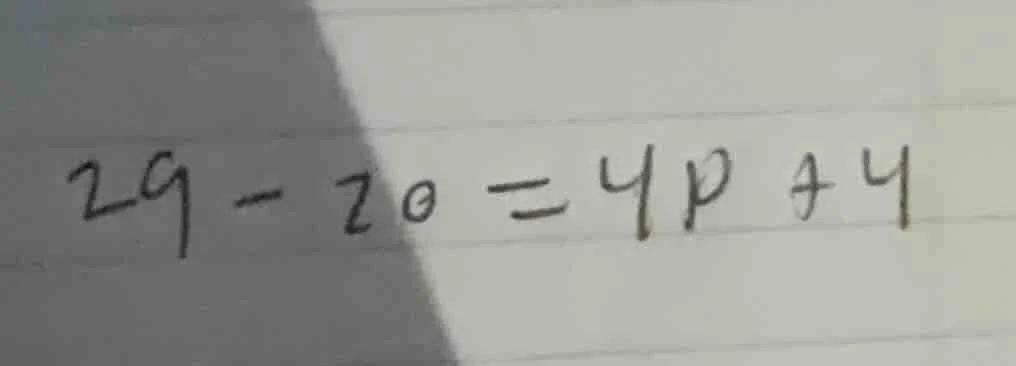 29 - 20 = 4p + 4